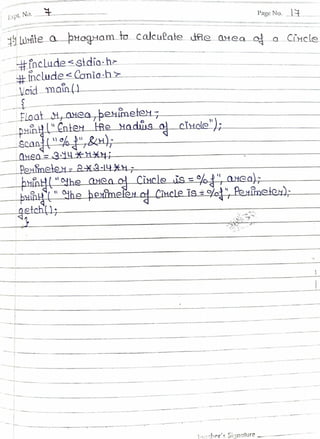 Expt. No. 7
Page No. 17
7) Write a program to calculate the area of a Circle
#include<stdio.h>
#include<Conio.h>
Void main()
{
Float r, area, perimeter;
printf("Enter the radius of circle");
Scanf("%f",&r);
area = 3.14*r*r;
Perimeter = 2*3.14*r;
printf("The area of Circle is = %f", area);
printf("The perimeter of Circle is = %f", Perimeter);
getch();
}
Teacher's Signature